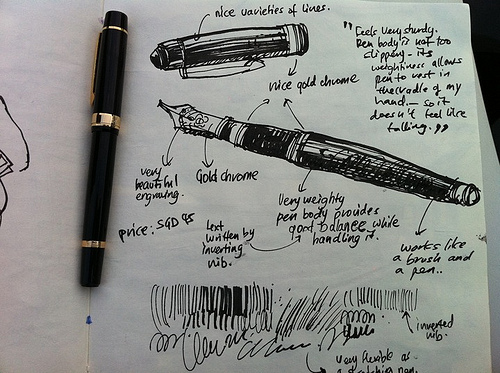 nice varieties of lines.
"Feels very sturdy.
Pen body is not too
slippery - its
weightiness allows
pen to rest in
the cradle of my
hand - so it
doesn't feel like
falling."
nice gold chrome
very
beautiful
engraving.
Gold chrome
price: SGD 95
Text
written by
inverting
nib.
Very weighty
pen body provides
good balance while
handling it.
works like
a brush and
a pen..
inverted
nib.
very flexible as
a sketching pen.